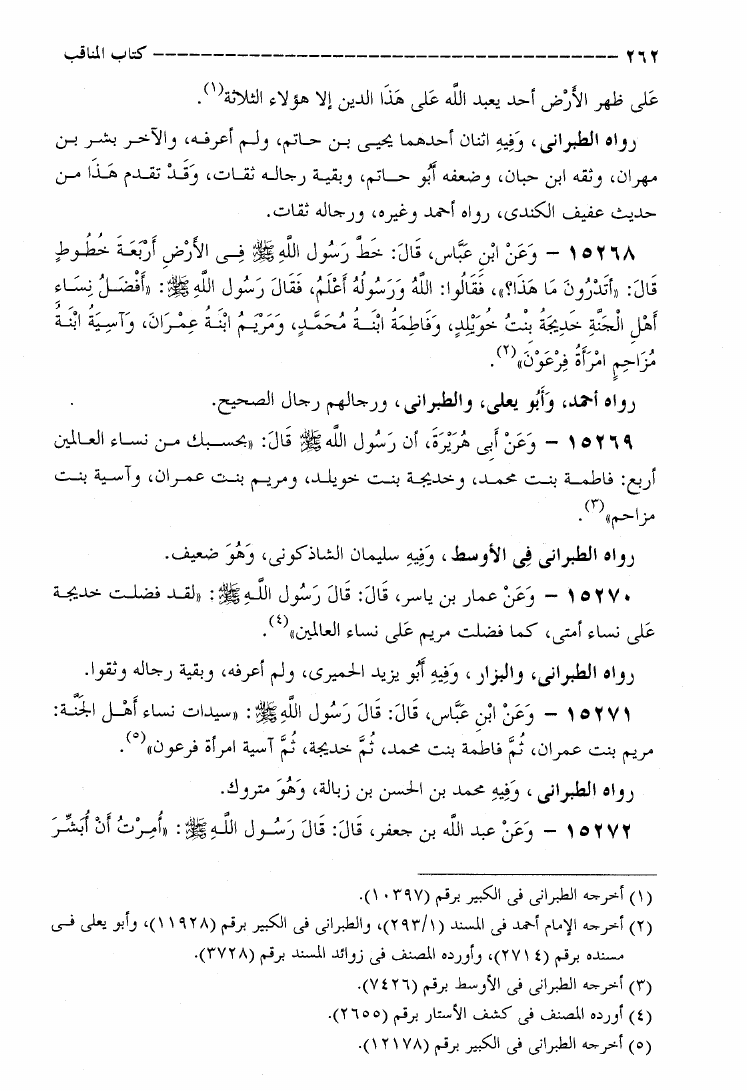 ٢٦٢ ------------------------------------- كتاب المناقب
عَلى ظهر الأَرْض أحد يعبد اللَّه عَلى هَذَا الدين إلا هؤلاء الثلاثة(١).
رواه الطبرانى، وَفِيهِ اثنان أحدهما يحيى بن حاتم، ولم أعرفه، والآخر بشر بن
مهران، وثقه ابن حبان، وضعفه أَبُو حاتم، وبقية رجاله ثقات، وَقَدْ تقدم هَذَا من
حديث عفيف الكندى، رواه أحمد وغيره، ورجاله ثقات.
١٥٢٦٨ – وَعَنْ ابْنِ عَبَّاس، قَالَ: خَطَّ رَسُول اللَّهِ ﷺ فِى الأَرْضِ أَرْبَعَةَ خُطُوطٍ
قَالَ: «أَتَدْرُونَ مَا هَذَا؟»، فَقَالُوا: اللَّهُ وَرَسُولُهُ أَعْلَمُ، فَقَالَ رَسُول اللَّهِ ﷺ: «أَفْضَلُ نِسَاءِ
أَهْلِ الْجَنَّةِ خَدِيجَةُ بِنْتُ خُوَيْلِدٍ، وَفَاطِمَةُ ابْنَةُ مُحَمَّدٍ، وَمَرْيَمُ ابْنَةُ عِمْرَانَ، وَآسِيَةُ ابْنَةُ
مُزَاحِمٍ امْرَأَةُ فِرْعَوْنَ»(٢).
رواه أحمد، وَأَبُو يعلى، والطبرانى، ورجالهم رجال الصحيح.
١٥٢٦٩ – وَعَنْ أَبِى هُرَيْرَةَ، أن رَسُول اللَّهِ ﷺ قَالَ: «بحسبك من نساء العالمين
أربع: فاطمة بنت محمد، وخديجة بنت خويلد، ومريم بنت عمران، وآسية بنت
مزاحم»(٣).
رواه الطبرانى فِى الأوسط، وَفِيهِ سليمان الشاذكونى، وَهُوَ ضعيف.
١٥٢٧٠ – وَعَنْ عمار بن ياسر، قَالَ: قَالَ رَسُول اللَّهِ ﷺ: «لقد فضلت خديجة
عَلى نساء أمتى، كما فضلت مريم عَلى نساء العالمين»(٤).
رواه الطبرانى، والبزار، وَفِيهِ أَبُو يزيد الحميرى، ولم أعرفه، وبقية رجاله وثقوا.
١٥٢٧١ – وَعَنْ ابْنِ عَبَّاس، قَالَ: قَالَ رَسُول اللَّهِ ﷺ: «سيدات نساء أَهْل الجَنَّة:
مريم بنت عمران، ثُمَّ فاطمة بنت محمد، ثُمَّ خديجة، ثُمَّ آسية امرأة فرعون»(٥).
رواه الطبرانى، وَفِيهِ محمد بن الحسن بن زبالة، وَهُوَ متروك.
١٥٢٧٢ – وَعَنْ عبد الله بن جعفر، قَالَ: قَالَ رَسُول اللَّهِ ﷺ: «أُمِرْتُ أَنْ أُبَشِّرَ
(١) أخرجه الطبرانى فى الكبير برقم (١٠٣٩٧).
(٢) أخرجه الإمام أحمد فى المسند (٢٩٣/١)، والطبرانى فى الكبير برقم (١١٩٢٨)، وأبو يعلى فى
مسنده برقم (٢٧١٤)، وأورده المصنف فى زوائد المسند برقم (٣٧٢٨).
(٣) أخرجه الطبرانى فى الأوسط برقم (٧٤٢٦).
(٤) أورده المصنف فى كشف الأستار برقم (٢٦٥٥).
(٥) أخرجه الطبرانى فى الكبير برقم (١٢١٧٨).